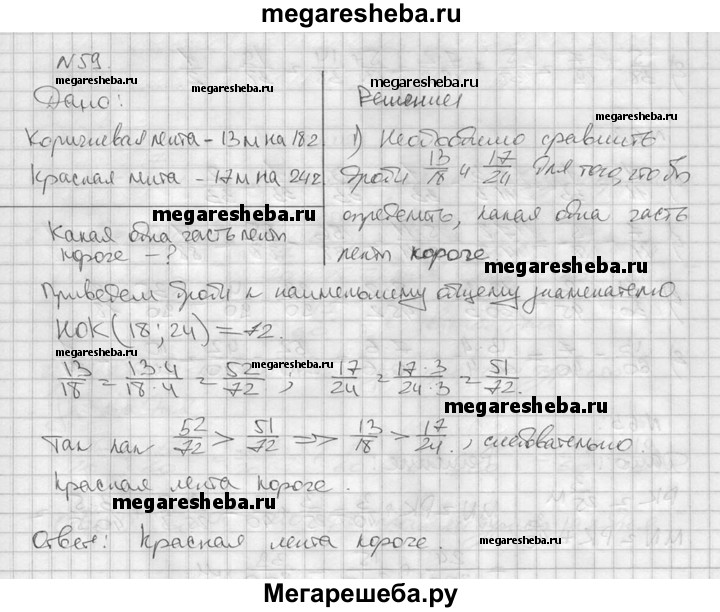 megaresheba.ru
N 59.
megaresheba.ru
Дано:
Коричневая лента - 13 м на 18 г
Красная лента - 17 м на 24 г
megaresheba.ru
Какая одна часть лент
короче - ?
megaresheba.ru
Решение
megaresheba.ru
1) Необходимо сравнить
дроби 13/18 и 17/24 для того, что бы
megaresheba.ru
определить, какая одна часть
лент короче
megaresheba.ru
Приведем дроби к наименьшему общему знаменателю
НОК (18; 24) = 72.
megaresheba.ru megaresheba.ru
13/18 = 13·4/18·4 = 52/72 ; 17/24 = 17·3/24·3 = 51/72.
megaresheba.ru
Так как 52/72 > 51/72 => 13/18 > 17/24., следовательно
Красная лента короче.
megaresheba.ru
Ответ: Красная лента короче.
megaresheba.ru
Мегарешеба.ру